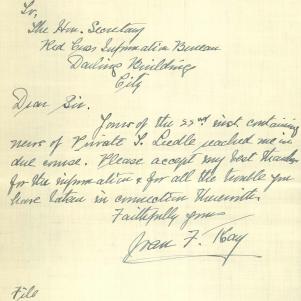 To,
The Hon. Secretary
Red Cross Information Bureau
Darling Building
City
Dear Sir.
Yours of the 22nd inst containing
news of Private S. Liddle reached me in
due course. Please accept my best thanks
for the information & for all the trouble you
have taken in connection therewith
Faithfully yours
F. Kay
File